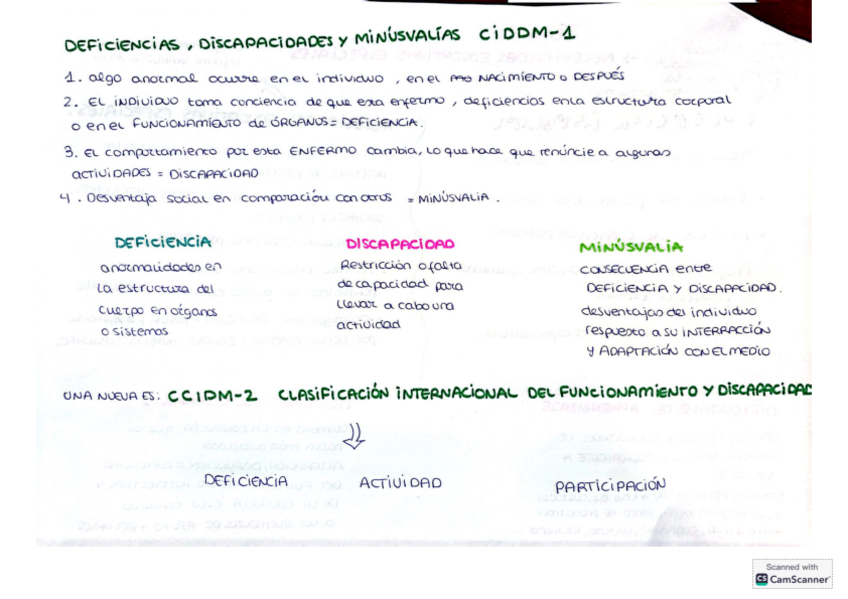 DEFICIENCIAS, DISCAPACIDADES Y MINÚSVALÍAS CIDDM-1
1. algo anormal ocurre en el individuo, en el NACIMIENTO o DESPUÉS
2. EL INDIVIDUO toma conciencia de que esta enfermo, deficiencias en la estructura corporal
o en el FUNCIONAMIENTO de ÓRGANOS = DEFICIENCIA.
3. EL comportamiento por esta ENFERMO cambia, lo que hace que renúncie a algunas
ACTIVIDADES = DISCAPACIDAD
4. Desventaja social en comparación con otros = MINÚSVALIA.
DEFICIENCIA
anormalidades en
la estructura del
cuerpo en órganos
o sistemas
DISCAPACIDAD
Restricción o falta
de capacidad para
llevar a cabo una
actividad
MINÚSVALIA
CONSECUENCIA entre
DEFICIENCIA Y DISCAPACIDAD.
desventajas del individuo
respecto a su INTERRACCIÓN
Y ADAPTACIÓN CON EL MEDIO
UNA NUEVA ES: CCIDM-2 CLASIFICACIÓN INTERNACIONAL DEL FUNCIONAMIENTO Y DISCAPACIDAD
DEFICIENCIA ACTIVIDAD PARTICIPACIÓN
Scanned with
CS CamScanner